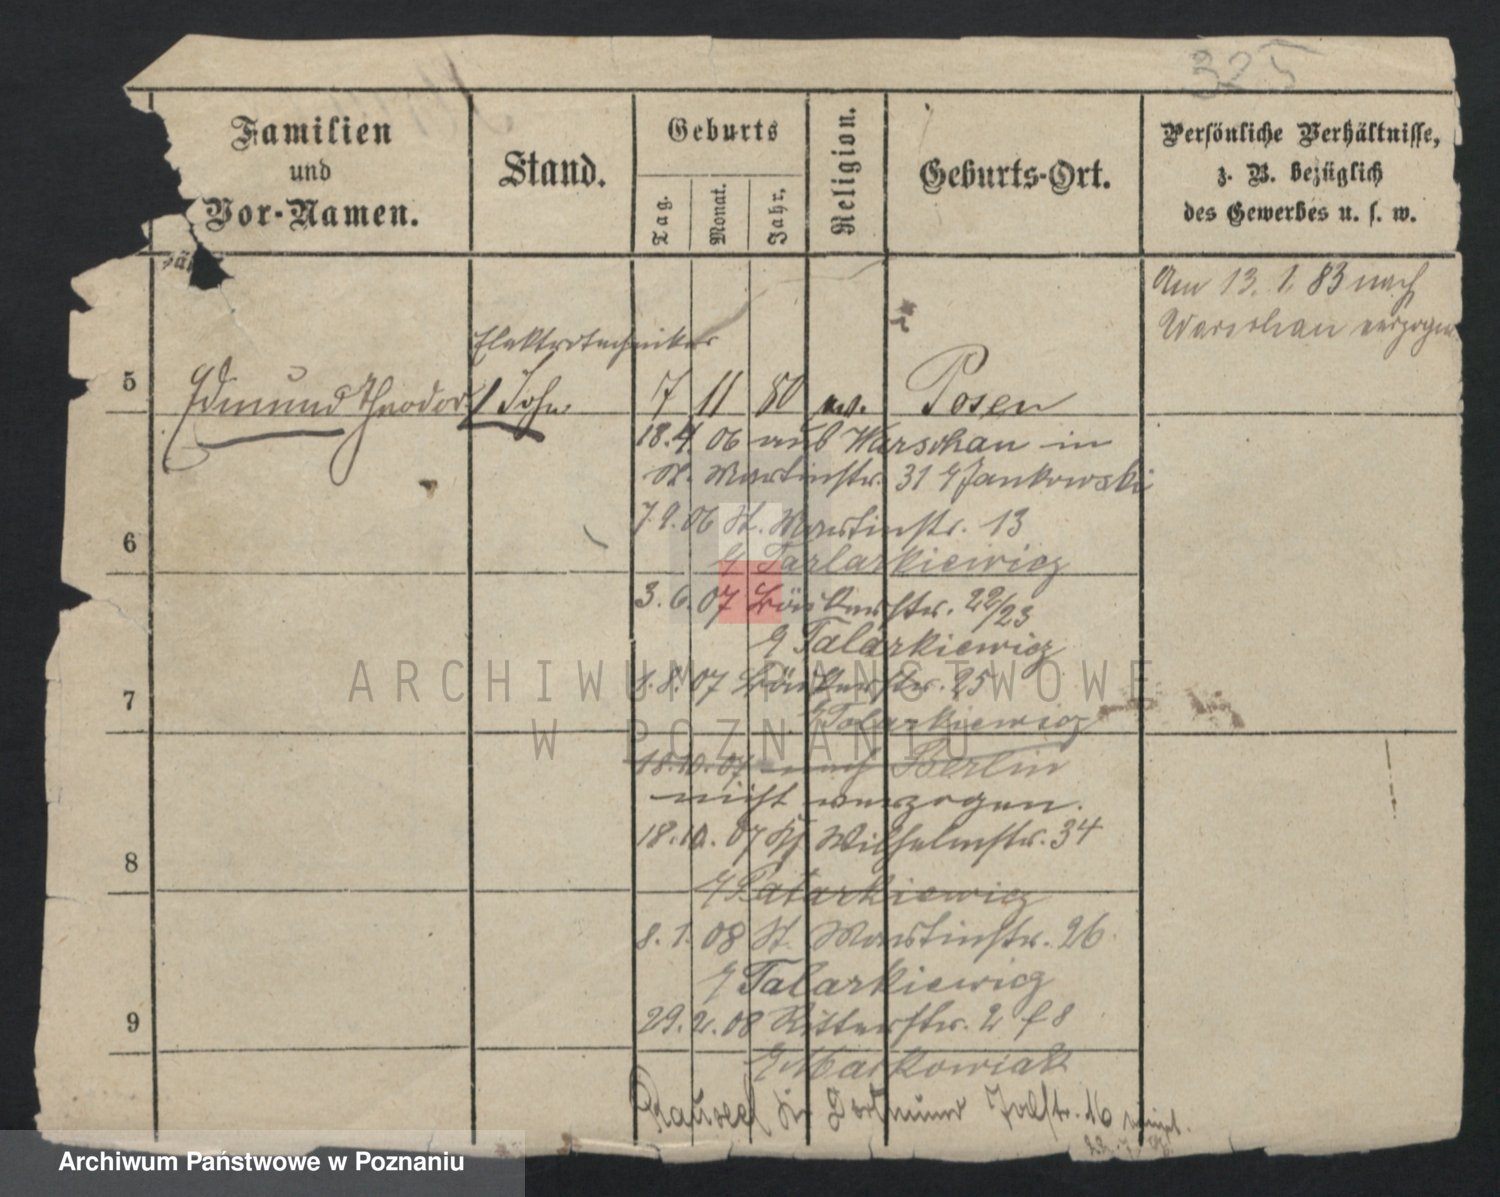 325
Familien
und
Vor-Namen.
Stand.
Geburts
Tag.
Monat.
Jahr.
Religion.
Geburts-Ort.
Persönliche Verhältnisse,
z. B. bezüglich
des Gewerbes u. s. w.
Am 13. 1. 83 nach
Warschau verzogen
Elektrotechniker
5 Edmund Theodor / Sohn 7 11 80 Posen
18.4.06 aus Warschau in
St. Martinstr. 31 Jankowski
7.9.06 St. Martinstr. 13
6
Tarlarkiewicz
3.6.07 Bäckerstr. 22/23
Talarkiewicz
8.8.07 Bäckerstr. 25
7
Talarkiewicz
18.10.07 nach Berlin
nicht verzogen.
18.10.07 Wilhelmstr. 34
8
Tatarkiewicz
8.1.08 St. Martinstr. 26
Talarkiewicz
9
29.2.08 Ritterstr. 2
Markowiak
Dortmund 16
ARCHIWUM PAŃSTWOWE
W POZNANIU
Archiwum Państwowe w Poznaniu